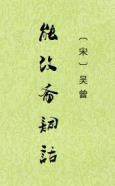 〔宋〕吴曾
能改斋词话